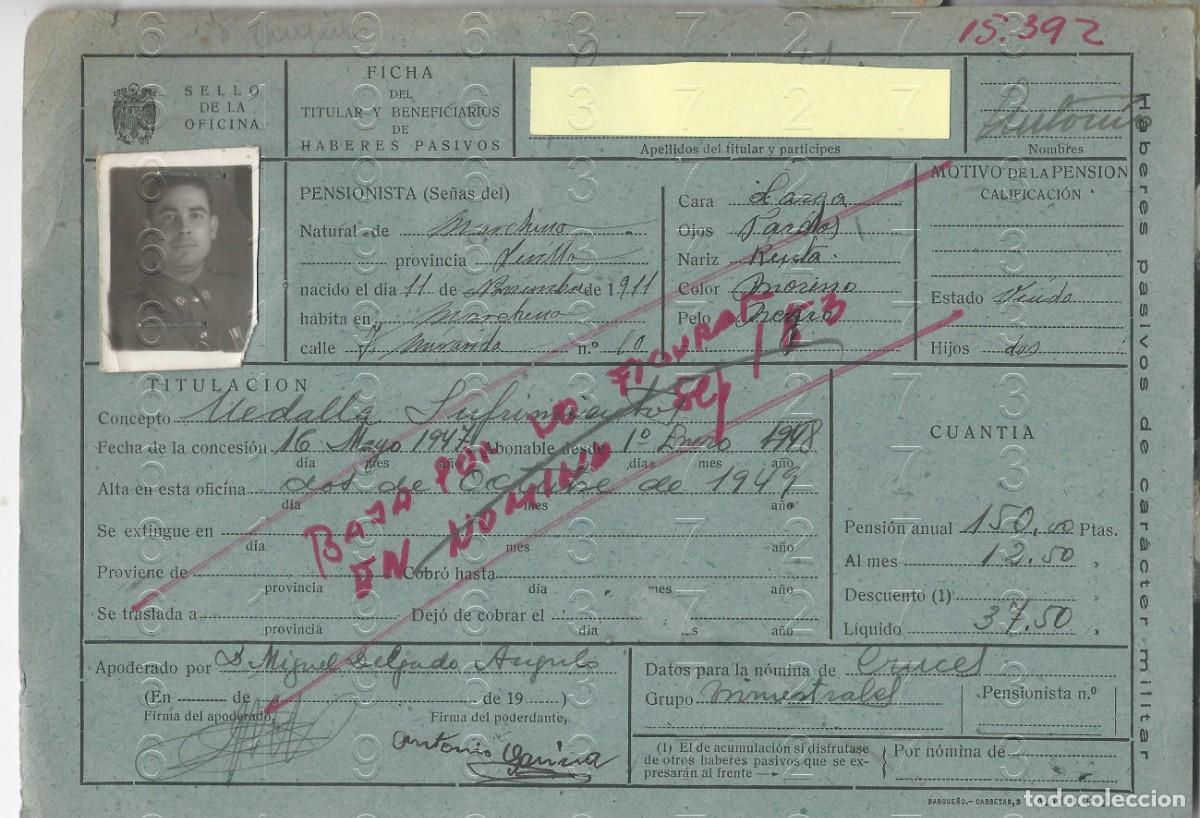 15.392
SELLO
DE LA
OFICINA
FICHA
DEL
TITULAR Y BENEFICIARIOS
DE
HABERES PASIVOS
Apellidos del titular y partícipes
Antonio
Nombres
PENSIONISTA (Señas del)
Natural de Marchena
provincia Sevilla
nacido el día 11 de Noviembre de 1911
habita en Marchena
calle nº 60
Cara Larga
Ojos Pardos
Nariz Recta
Color Moreno
Pelo Negro
MOTIVO DE LA PENSION
CALIFICACIÓN
Estado Viudo
Hijos dos
Haberes pasivos de carácter militar
TITULACION
Concepto Medalla Sufrimientos
Fecha de la concesión 16 Mayo 1947 Abonable desde 1º Enero 1948
día mes año día mes año
Alta en esta oficina dos de Octubre de 1949
día mes año
Se extingue en
día mes año
Proviene de Cobró hasta
provincia día mes año
Se traslada a Dejó de cobrar el
provincia día s año
BAJA POR NO FIGURAR
EN NOMINA
CUANTIA
Pensión anual 150,00 Ptas.
Al mes 12.50 »
Descuento (1) »
Líquido 37.50 »
Apoderado por D. Miguel Delgado Angulo
(En de de 19 )
Firma del apoderado, Firma del poderdante,
Antonio
Datos para la nómina de Cruces
Grupo trimestrales
Pensionista n.º
(1) El de acumulación si disfrutase
de otros haberes pasivos que se ex-
presarán al frente
Por nómina de
BARGUEÑO.- CARRETAS,
todocoleccion
6 1 9 6 3 7 2 7 3